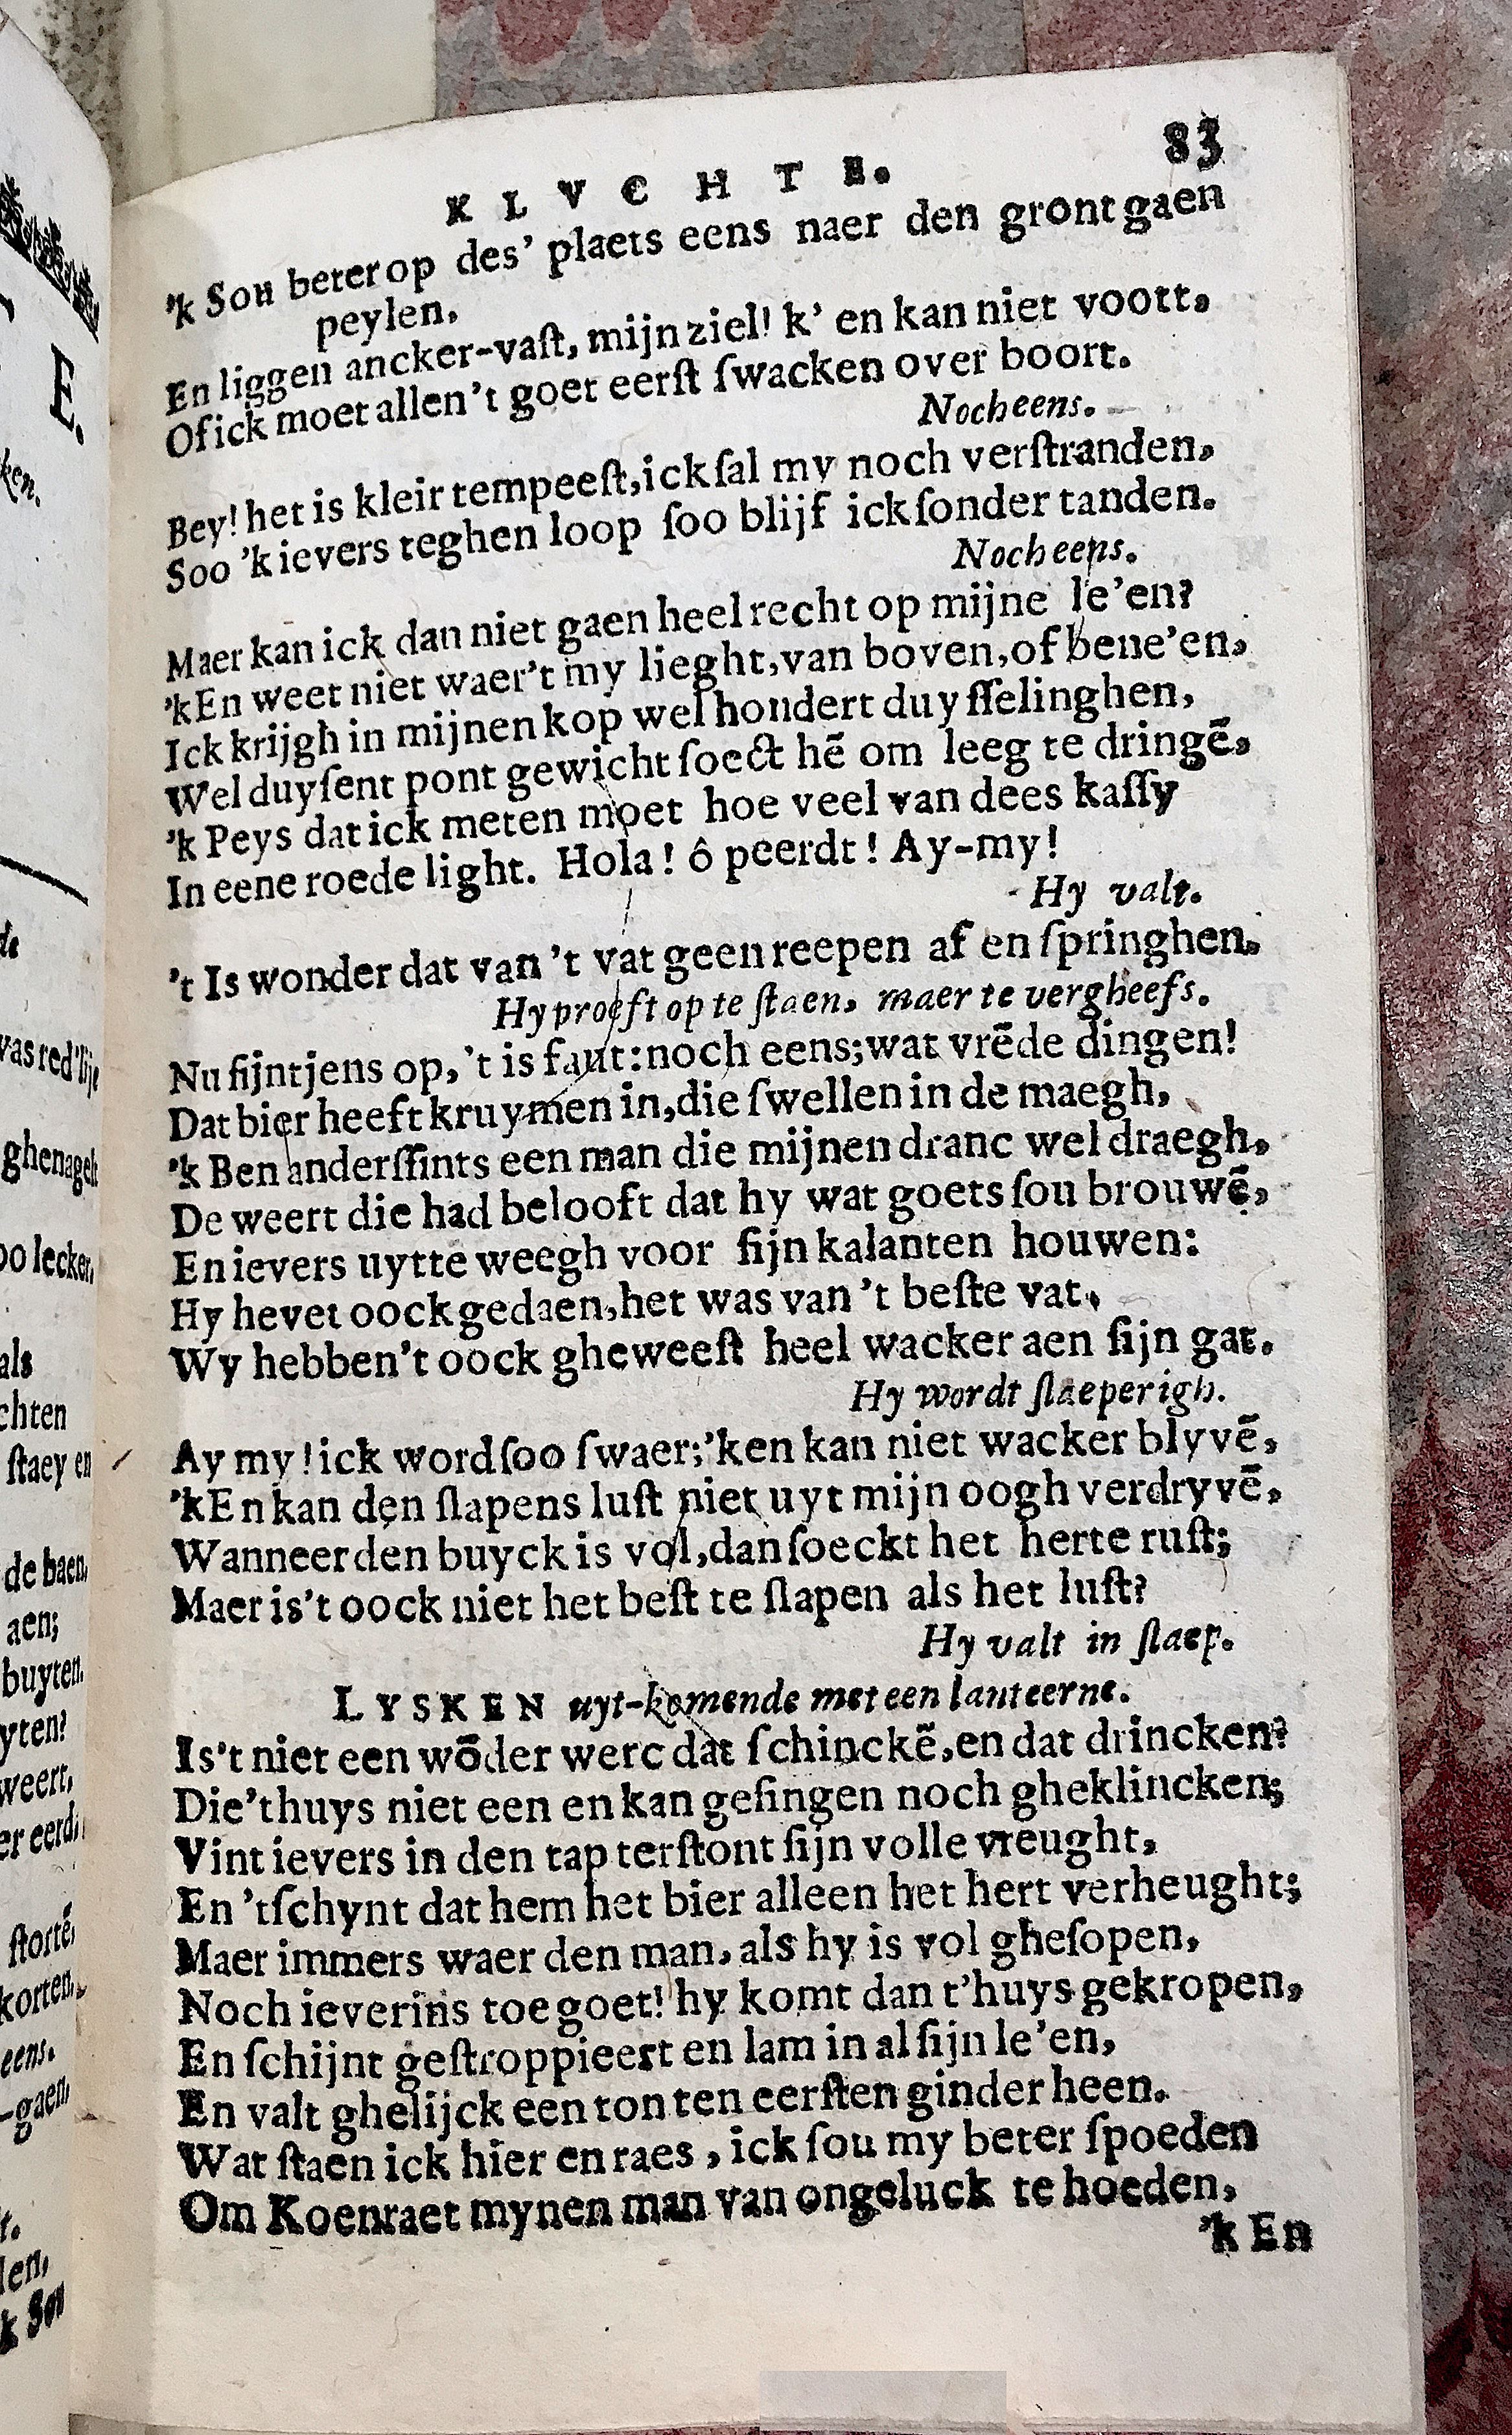 KLVCHTE. 83
'k Sou beter op des' plaets eens naer den gront gaen
peylen.
En liggen ancker-vaſt, mijn ziel! k' en kan niet voott.
Of ick moet allen 't goet eerſt ſwacken over boort.
Noch eens.
Bey! het is kleir tempeeſt, ick ſal my noch verſtranden,
Soo 'k ievers teghen loop ſoo blijf ick ſonder tanden.
Noch eens.
Maer kan ick dan niet gaen heel recht op mijne le'en?
'k En weet niet waer 't my lieght, van boven, of bene'en,
Ick krijgh in mijnen kop wel hondert duyſſelinghen,
Wel duyſent pont gewicht ſoect hẽ om leeg te dringẽ,
'k Peys dat ick meten moet hoe veel van dees kaſſy
In eene roede light. Hola! ô peerdt! Ay-my!
Hy valt.
't Is wonder dat van 't vat geen reepen af en ſpringhen.
Hy proeft op te ſtaen, maer te vergheefs.
Nu ſijntjens op, 't is faut: noch eens; wat vrẽde dingen!
Dat bier heeft kruymen in, die ſwellen in de maegh,
'k Ben anderſſints een man die mijnen dranc wel draegh,
De weert die had belooft dat hy wat goets ſou brouwẽ,
En ievers uytte weegh voor ſijn kalanten houwen:
Hy hevet oock gedaen, het was van 't beſte vat,
Wy hebben 't oock gheweeſt heel wacker aen ſijn gat.
Hy wordt ſlaeperigh.
Ay my! ick word ſoo ſwaer; 'k en kan niet wacker blyvẽ,
'k En kan den ſlapens luſt niet uyt mijn oogh verdryvẽ,
Wanneer den buyck is vol, dan ſoeckt het herte ruſt;
Maer is 't oock niet het beſt te ſlapen als het luſt?
Hy valt in ſlaep.
LYSKEN uyt-komende met een lanteerne.
Is 't niet een wõder werc dat ſchinckẽ, en dat drincken?
Die 't huys niet een en kan geſingen noch gheklincken;
Vint ievers in den tap terſtont ſijn volle vreught,
En 't ſchynt dat hem het bier alleen het hert verheught;
Maer immers waer den man, als hy is vol gheſopen,
Noch ieverins toe goet! hy komt dan t'huys gekropen,
En ſchijnt geſtroppieert en lam in al ſijn le'en,
En valt ghelijck een ton ten eerſten ginder heen.
Wat ſtaen ick hier en raes, ick ſou my beter ſpoeden
Om Koenraet mynen man van ongeluck te hoeden,
'k En